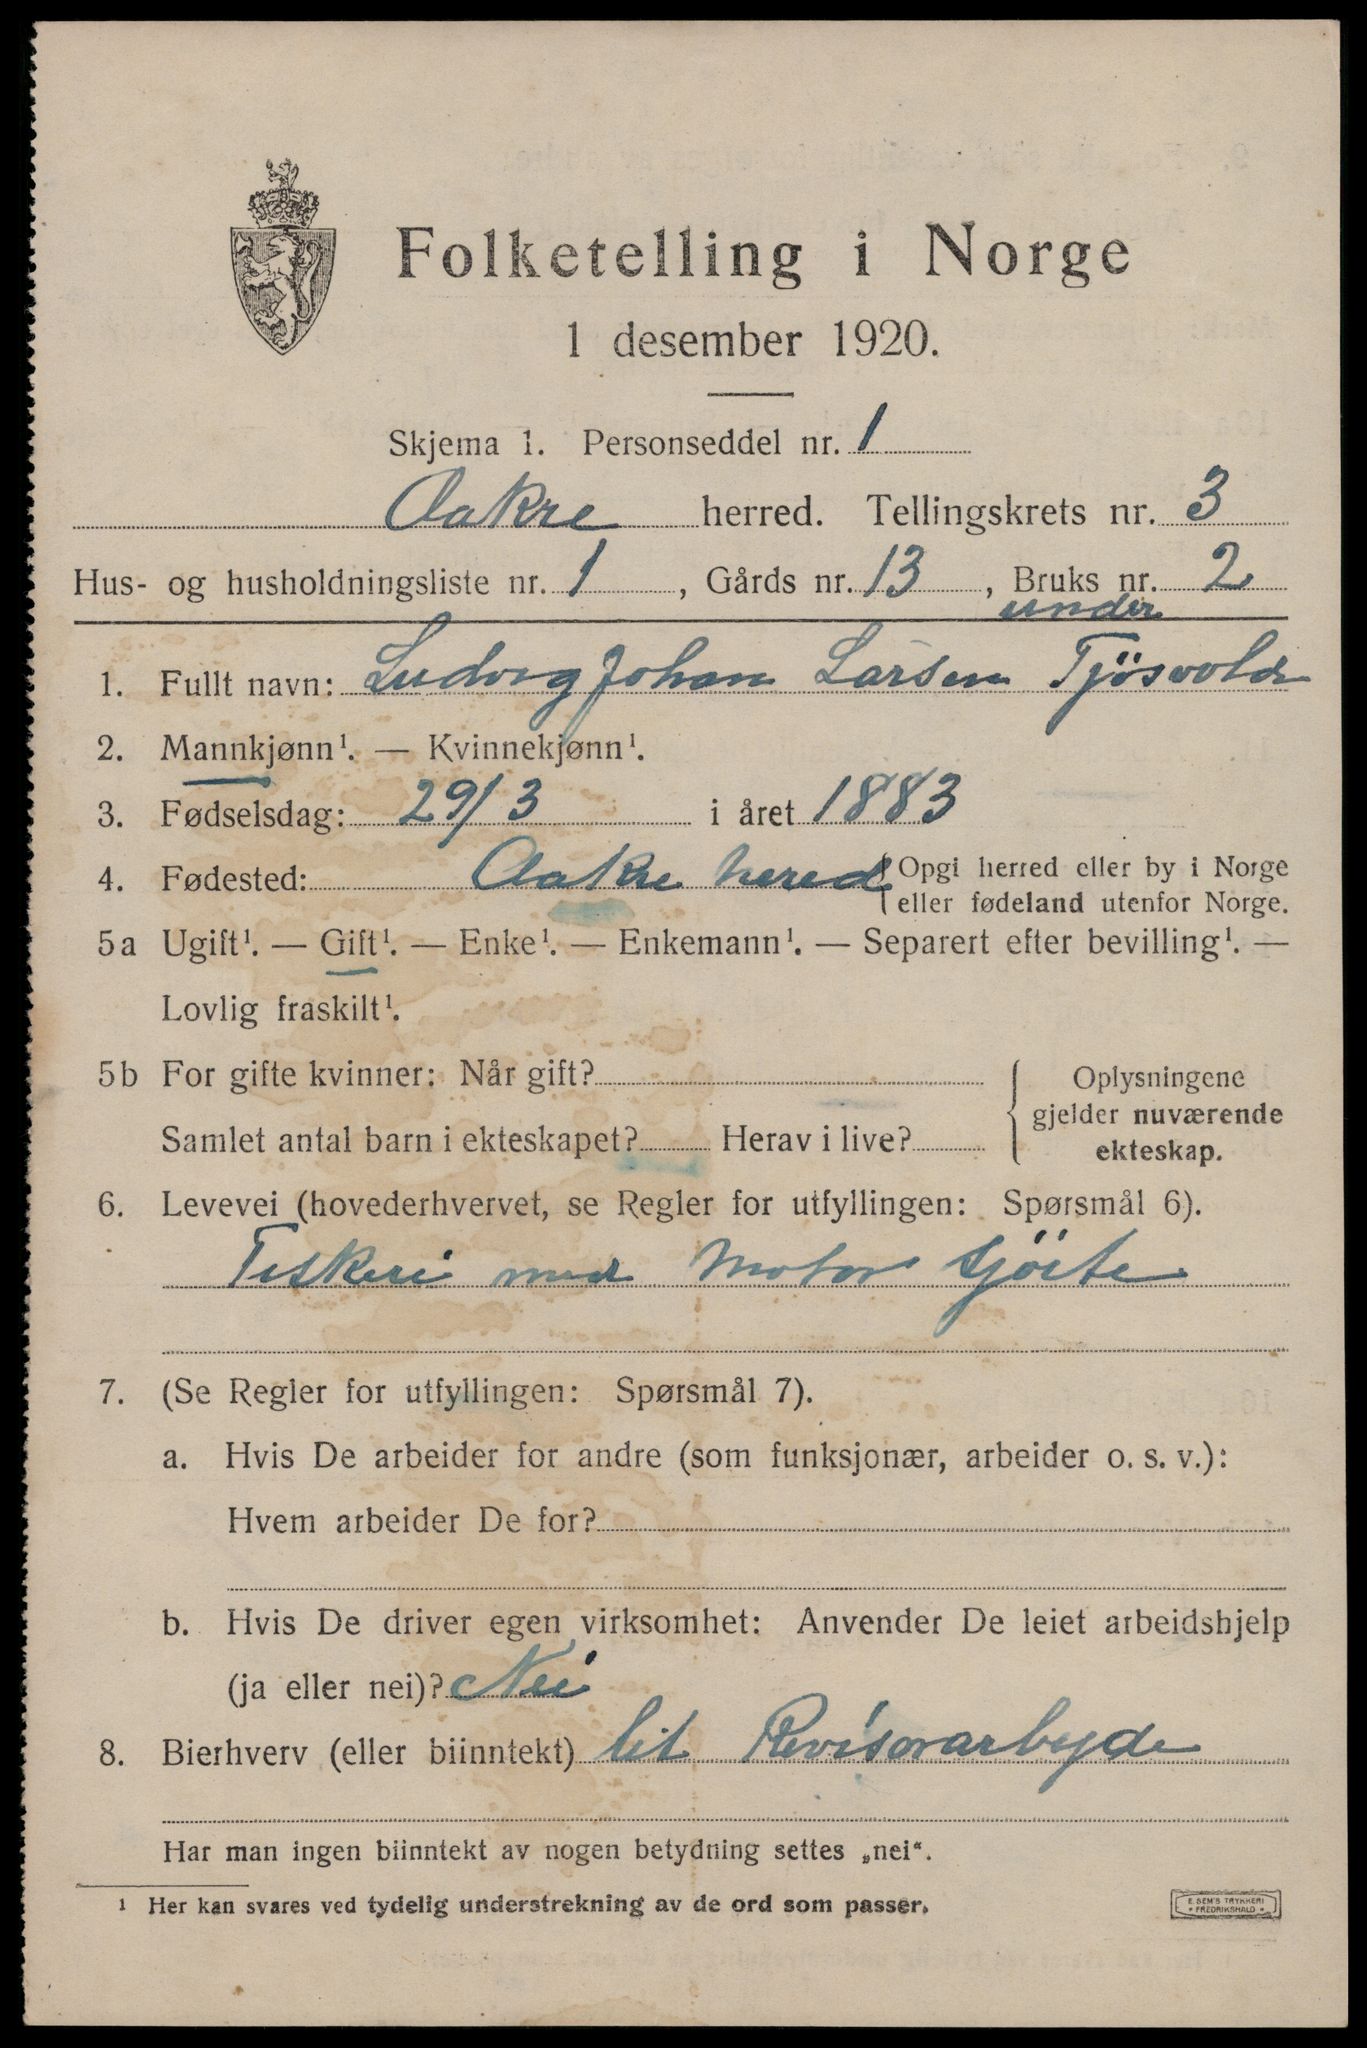 Folketelling i Norge
1 desember 1920.
Skjema 1. Personseddel nr. 1
Aakre herred. Tellingskrets nr. 3
Hus- og husholdningsliste nr. 1, Gårds nr. 13, Bruks nr. 2
under
1. Fullt navn: Ludvig Johan Larsen Tjösvold
2. Mannkjønn¹. — Kvinnekjønn¹.
3. Fødselsdag: 29/3 i året 1883
4. Fødested: Aakre hered { Opgi herred eller by i Norge
eller fødeland utenfor Norge.
5a Ugift¹. — Gift¹. — Enke¹. — Enkemann¹. — Separert efter bevilling¹. —
Lovlig fraskilt¹.
5b For gifte kvinner: Når gift?
Samlet antal barn i ekteskapet? Herav i live?
Oplysningene
gjelder nuværende
ekteskap.
6. Levevei (hovederhvervet, se Regler for utfyllingen: Spørsmål 6).
Fiskeri med Motor sjöite
7. (Se Regler for utfyllingen: Spørsmål 7).
a. Hvis De arbeider for andre (som funksjonær, arbeider o. s. v.):
Hvem arbeider De for?
b. Hvis De driver egen virksomhet: Anvender De leiet arbeidshjelp
(ja eller nei)? Nei
8. Bierhverv (eller biinntekt) lit Revisorarbeyde
Har man ingen biinntekt av nogen betydning settes „nei“.
¹ Her kan svares ved tydelig understrekning av de ord som passer.
E. SEM'S TRYKKERI
* FREDRIKSHALD *